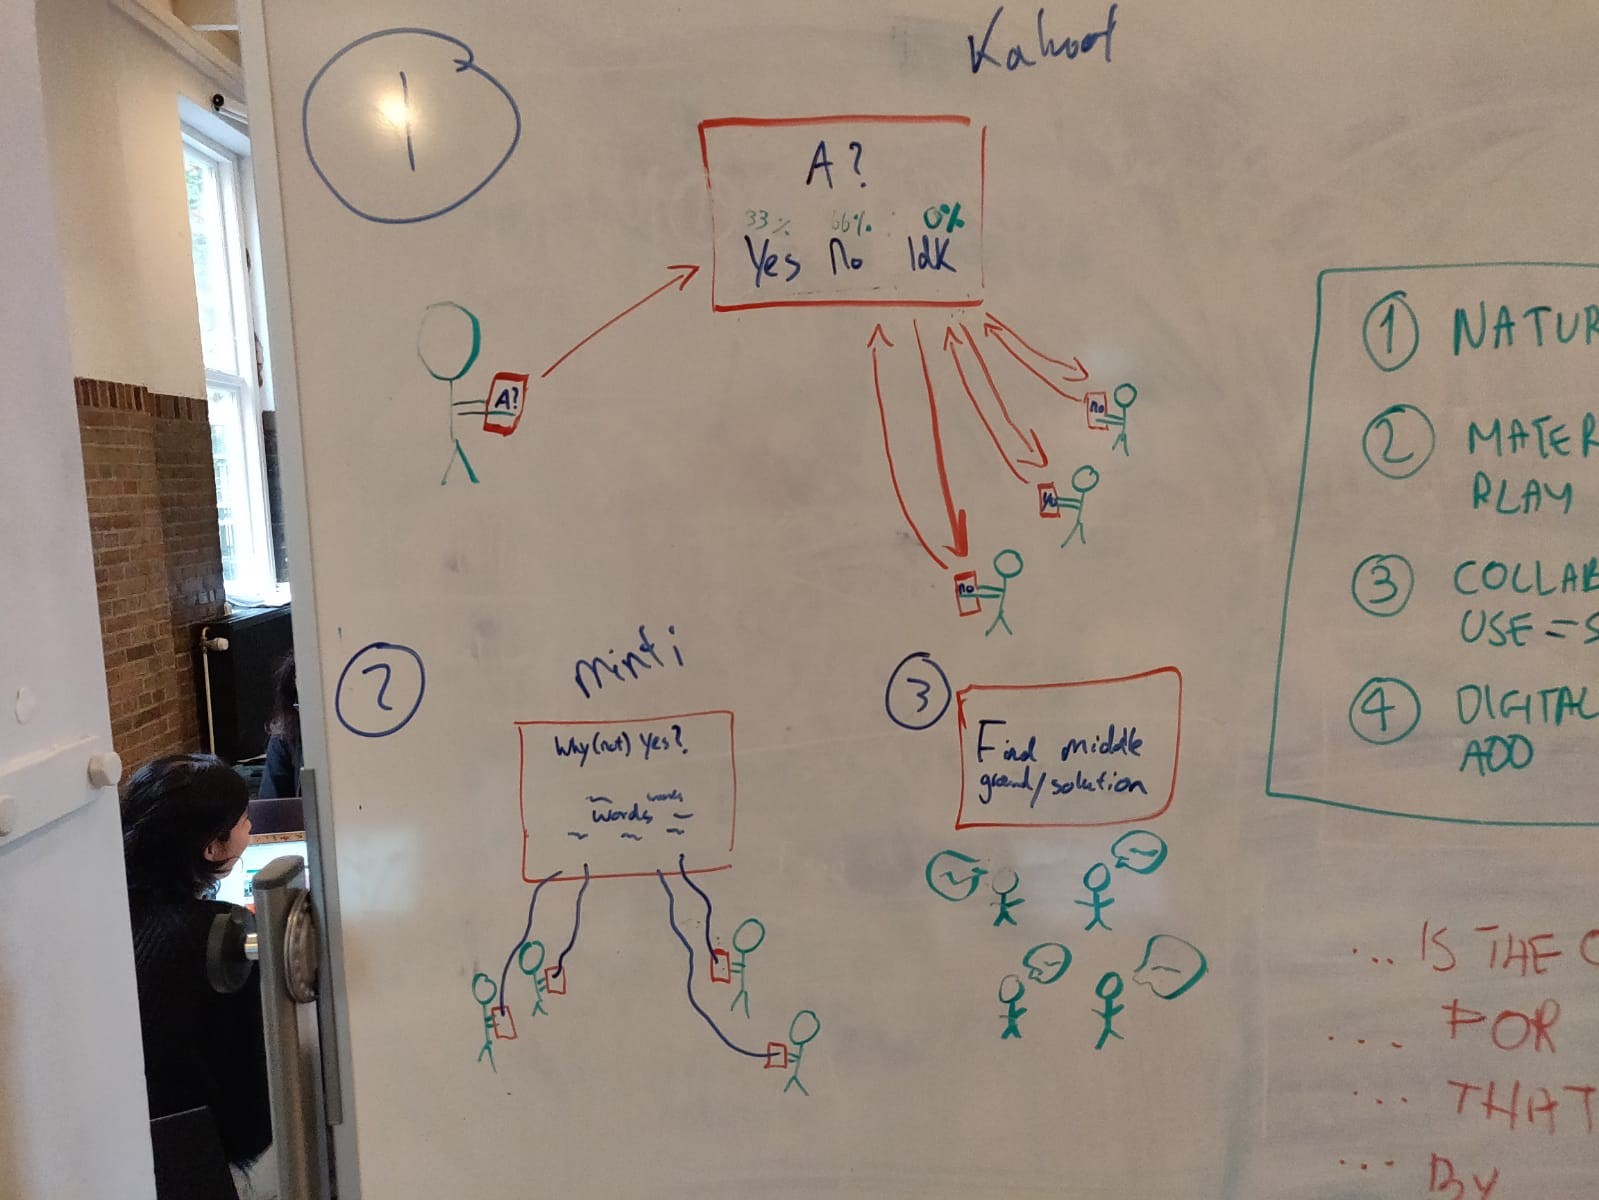 1
Kahoot
A?
33% 66% 0%
Yes no Idk
A?
no
no
2
minti
Why(not) Yes?
words
words
3
Find middle
ground/solution
1 NATUR
2 MATER
PLAY
3 COLLAB
USE = S
4 DIGITAL
ADD
... IS THE C
... FOR
... THAT
... By